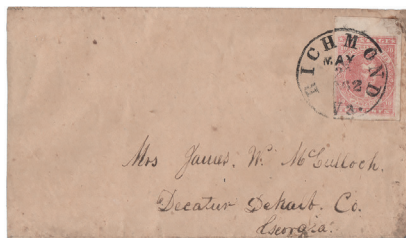 RICHMOND
MAY
Va.
Mrs James. W. McCulloch.
Decatur Dekalb. Co.
Georgia.